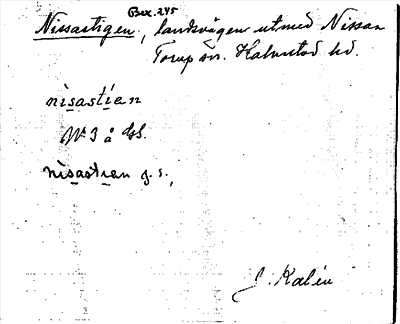 Bex. 245
Nissastigen, landsvägen utmed Nissan
Torup sn. Halmstad hd.
nisastien
Nº 3 å
nisastian g. s.,
J. Kalén